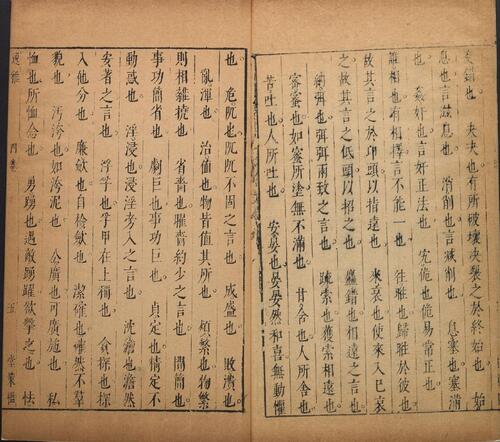 夬夬也有所破壞夬裂之於終始也。 始
息也言滋息也。 消削也言減削也。 息塞也塞滿
也。 姦奸也言奸正法也。 宄佹也佹易常正也。
誰相也有相擇言不能一也。 往暀也歸暀於彼也
故其言之於卬頭以指遠也。 來哀也使來入己哀
之故其言之低頭以招之也。 麤錯也相遠之言也。
納弭也弭弭兩致之言也。 疏索也獲索相遠也。
密蜜也如蜜所塗無不滿也。 甘含也人所含也。
苦吐也人所吐也。 安晏也晏晏然和喜無動懼
也。 危阢也阢阢不固之言也。 成盛也。 敗潰也。
亂渾也。 治値也物皆值其所也。 煩繁也物繁
則相雜撓也。 省嗇也臞嗇約少之言也。 間簡也
事功簡省也。 劇巨也事功巨也。 貞定也精定不
動惑也。 淫浸也浸淫旁入之言也。 沈澹也澹然
安著之言也。 浮孚也孚甲在上稱也。 貪探也探
入他分也。 廉歛也自檢歛也。 潔確也確然不羣
貌也。 汚洿也如洿泥也。 公廣也可廣施也。 私
恤也所恤念也。 勇踴也遇敵踴躍欲擊之也。 怯
逸雅 四卷 五 堂策檻